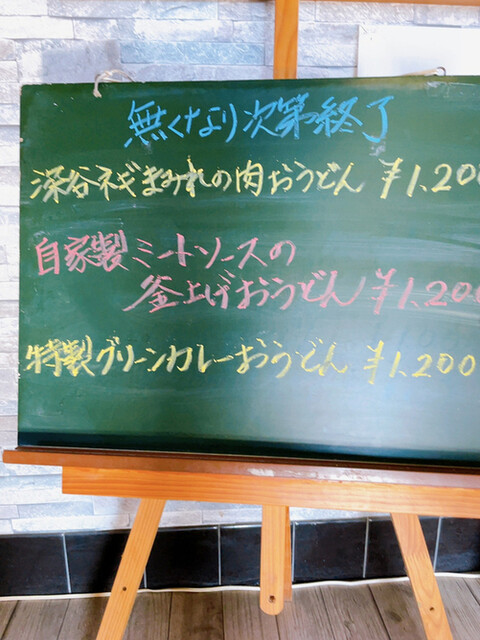 無くなり次第終了
深谷ネギまみれの肉おうどん ¥1.200
自家製ミートソースの
釜上げおうどん ¥1.200
特製グリーンカレーおうどん ¥1.200